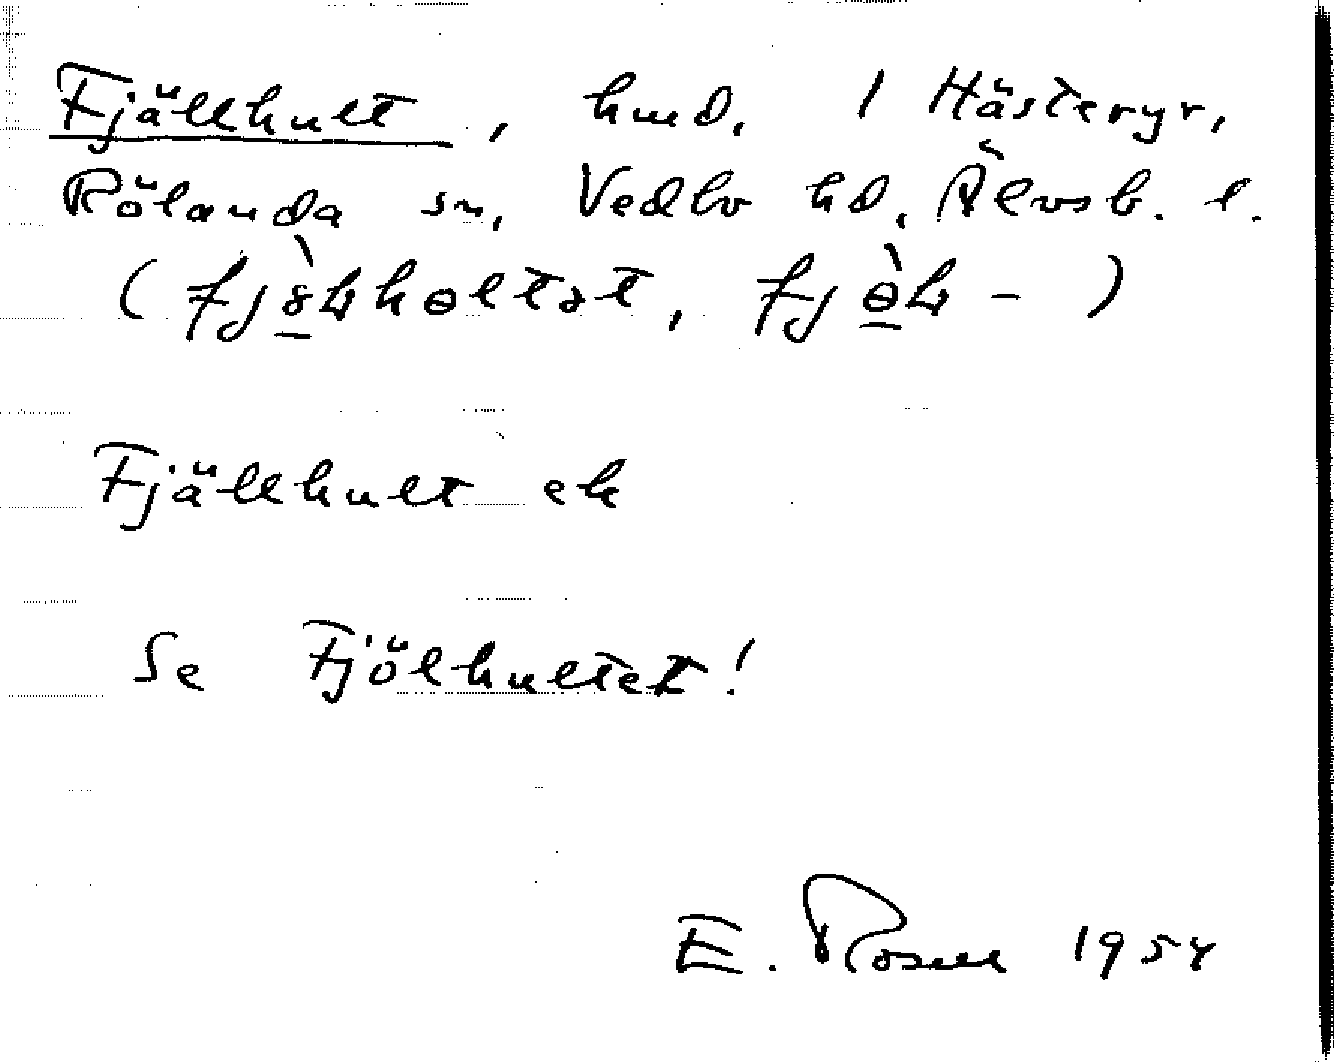 Fjällhult, hmd. 1 Hästeryr,
Rölanda sn, Vedbo hd, Älvsb. l.
Fjällhult ek
Se Fjölhultet!
E. Rosell 1954